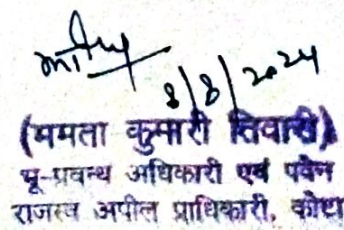 8/8/2024
(ममता कुमारी तिवारी)
भू-प्रबन्ध अधिकारी एवं पदेन
राजस्व अपील प्राधिकारी, कोटा